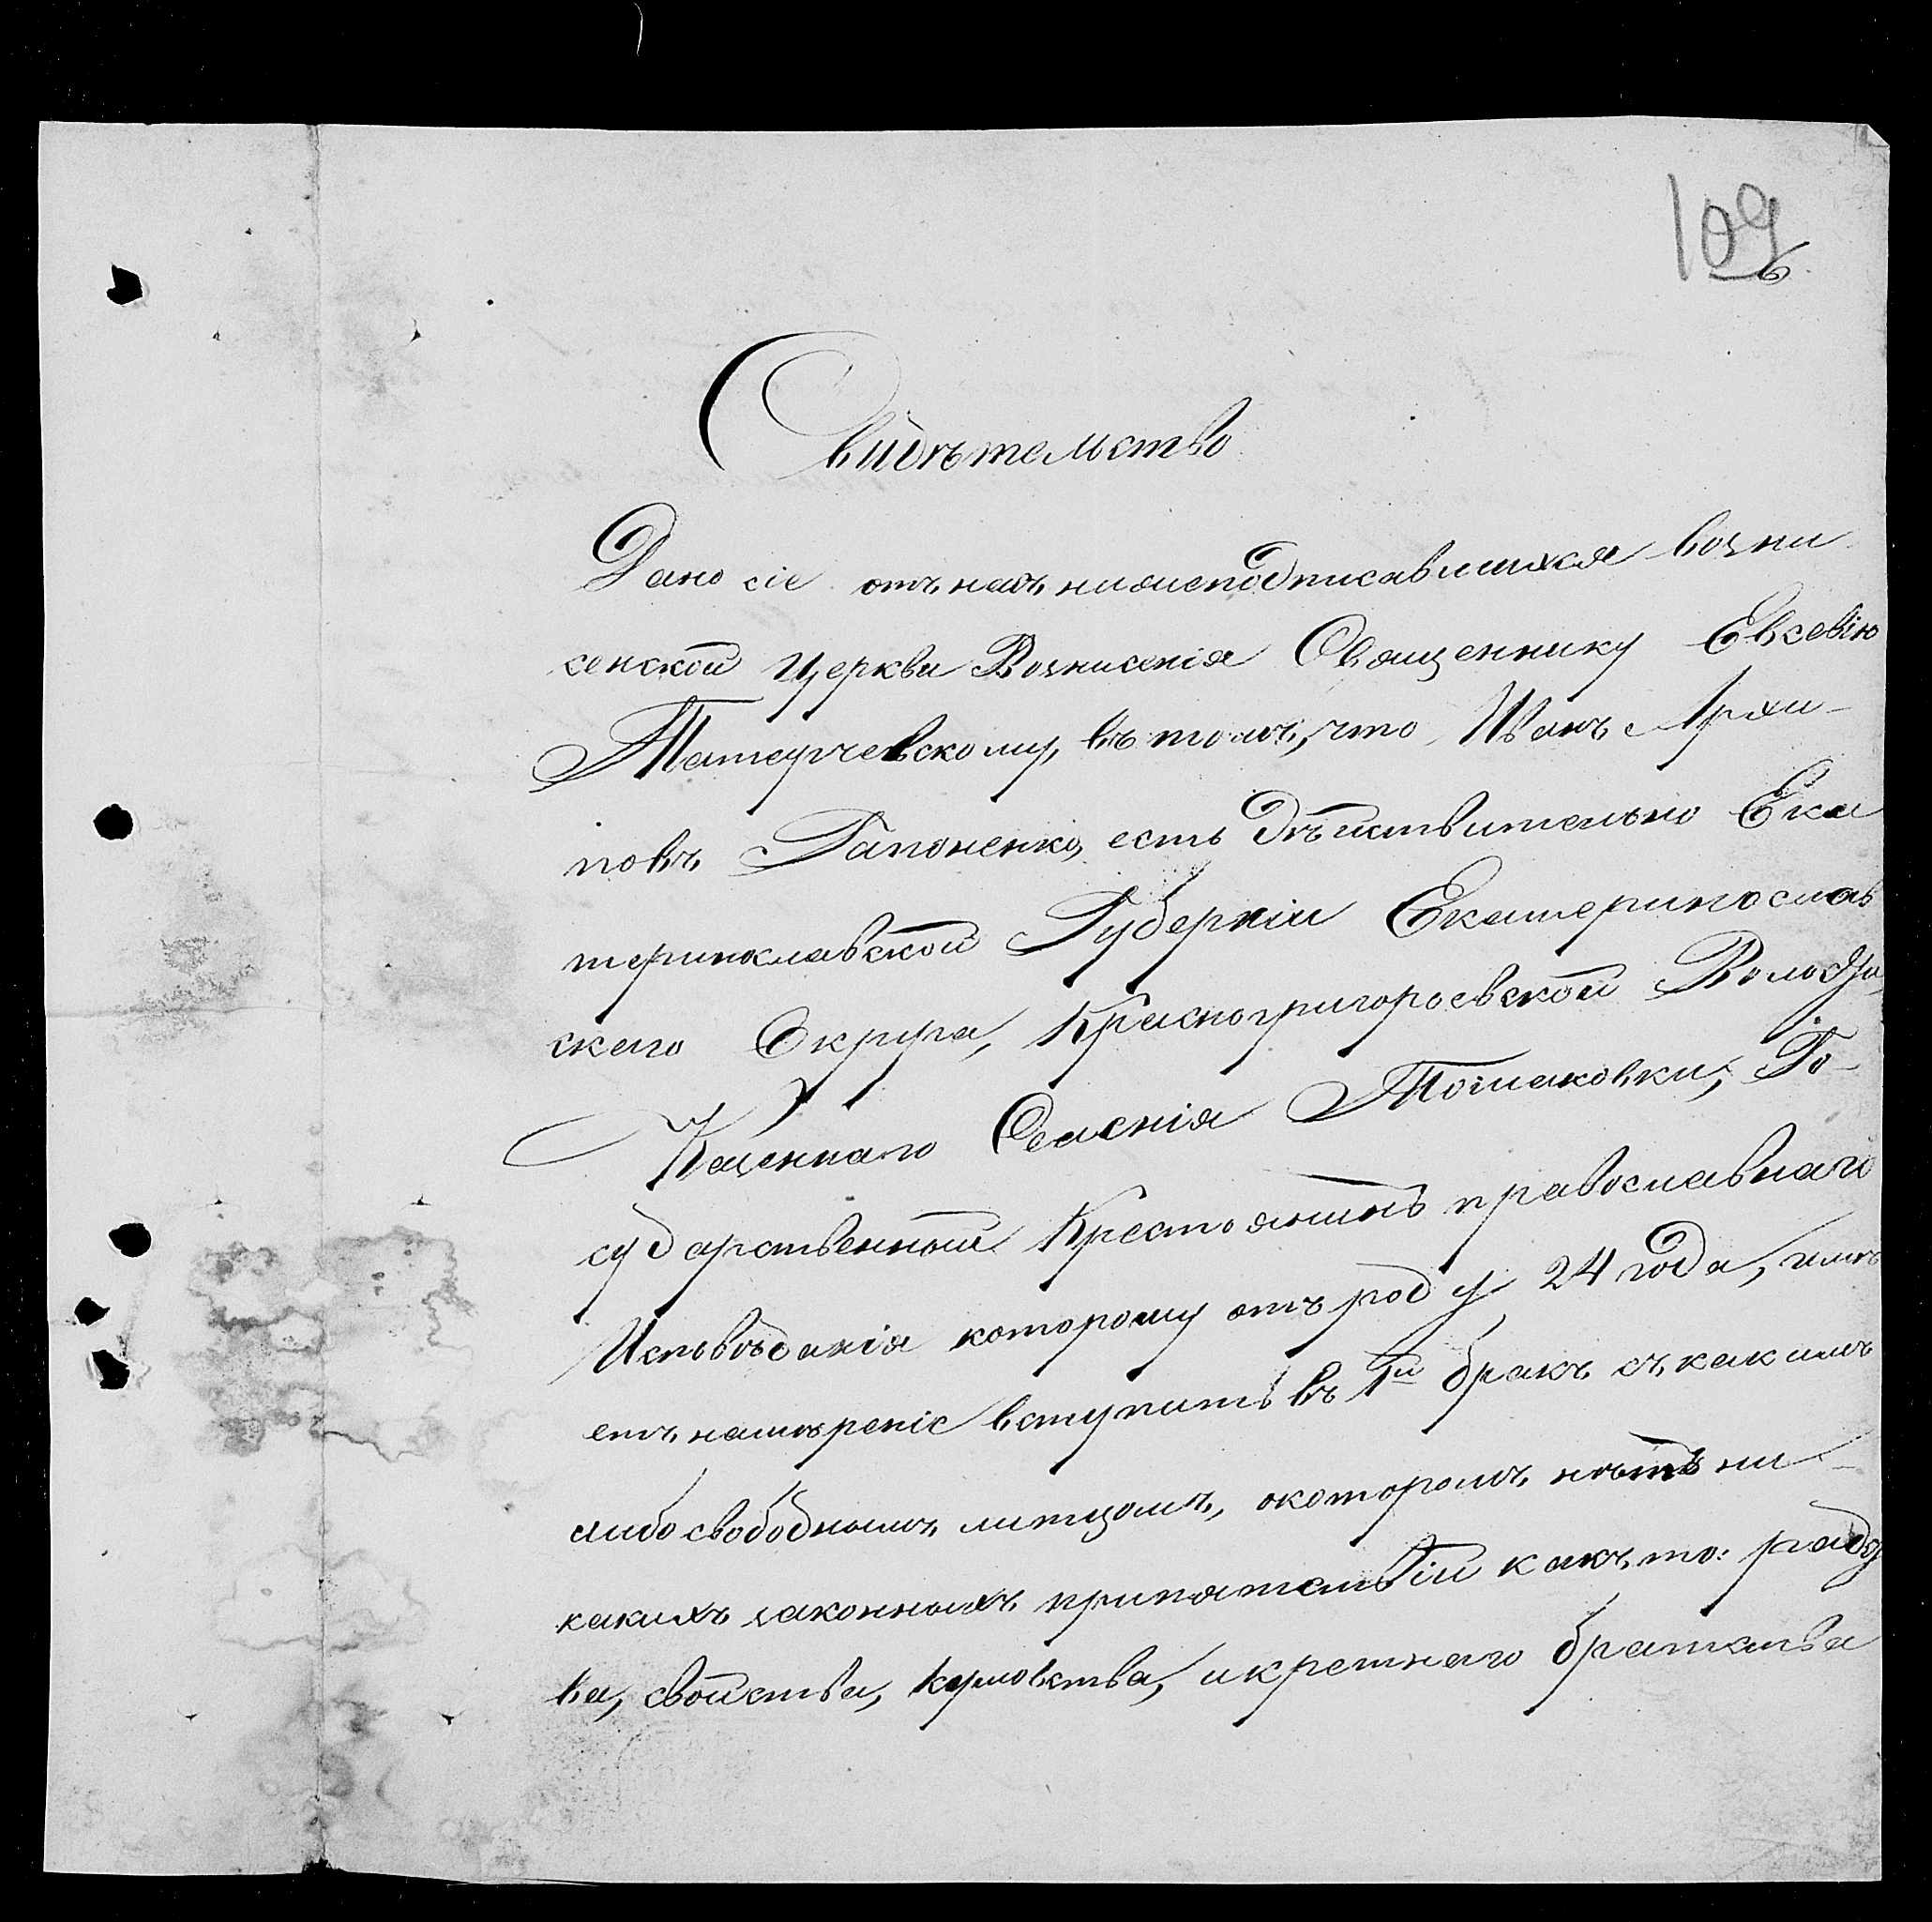 109
Свидѣтельство
Дано сіе отъ насъ нижеподписавшихся возни
сенской церкви Вознисенія Священнику Евсевію
Татарчевскому, въ томъ, что Иванъ Архи-
повъ Гапоненко, есть дѣйствительно Ека
теринославской Губерніи Екатеринослав
скаго Округа, Красногригоровской Волости
Казеннаго Селенія Томаковки, Го-
сударственный Крестоянинъ православнаго
Исповѣданія которому отъ роду 24 года, имѣ
етъ намѣреніе вступить въ 1й бракъ съ какимъ
либо свободнымъ литцомъ, окоторомъ нѣтъ ни-
какихъ законныхъ припятствій какъ то: радс
ва, свойства, кумовства, икрестнаго братства